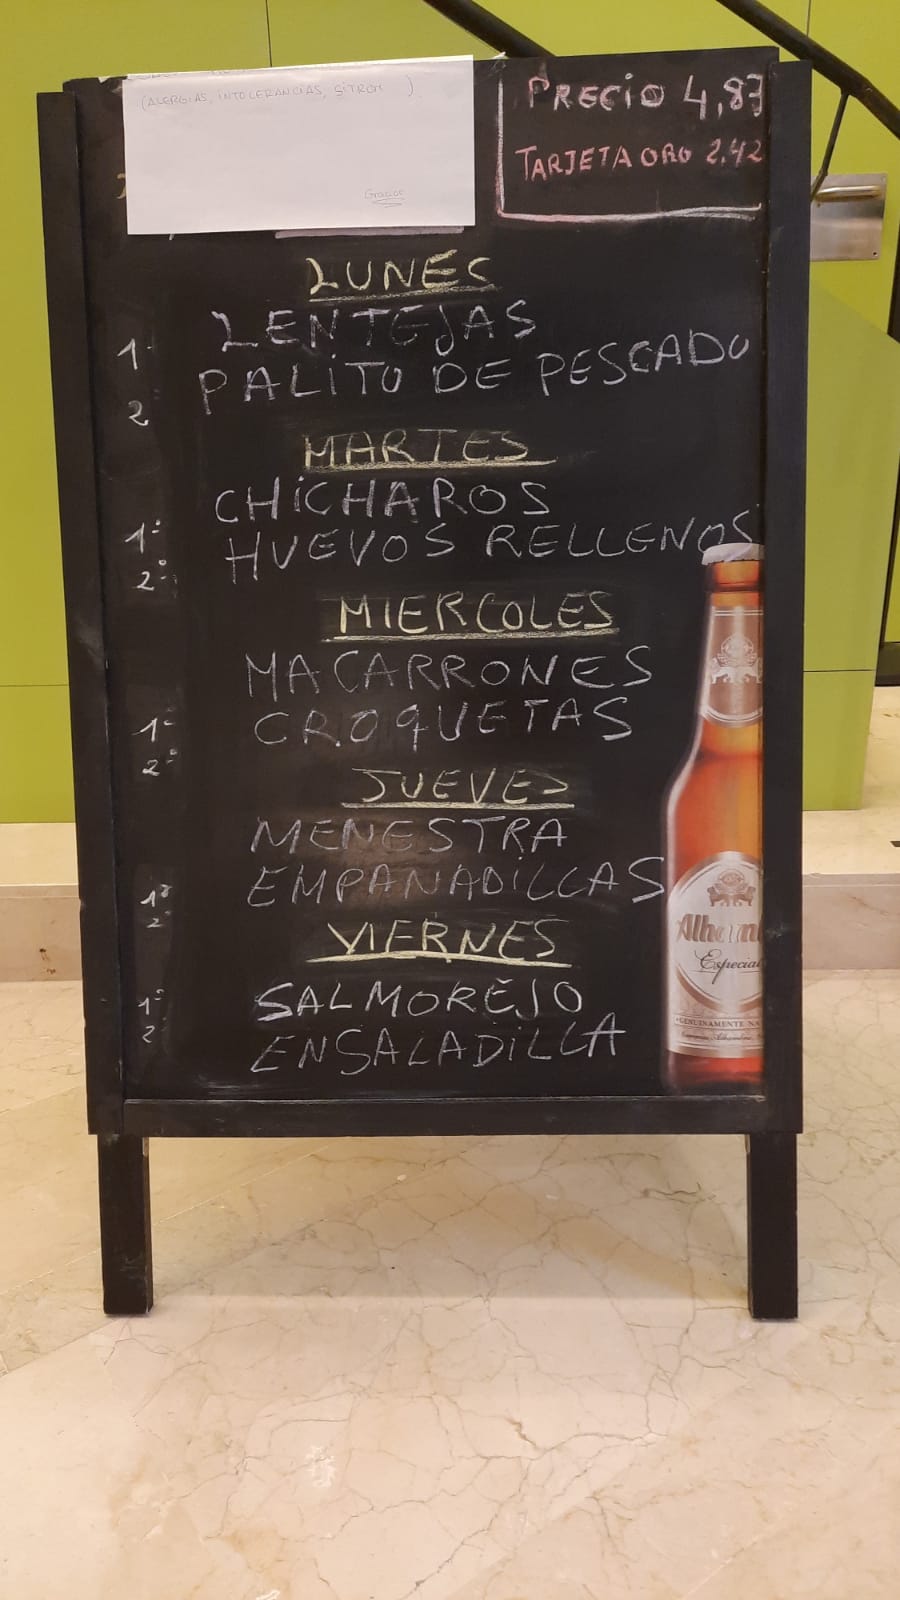 (ALERGIAS, INTOLERANCIAS, SITROM )
Gracias
PRECIO 4,87
TARJETA ORO 2,42
LUNES
1º LENTEJAS
2 PALITO DE PESCADO
MARTES
1º CHICHAROS
2º HUEVOS RELLENOS
MIERCOLES
1º MACARRONES
2º CROQUETAS
JUEVES
1º MENESTRA
2º EMPANADILLAS
VIERNES
1º SALMOREJO
2 ENSALADILLA
Especial
GENUINAMENTE NA